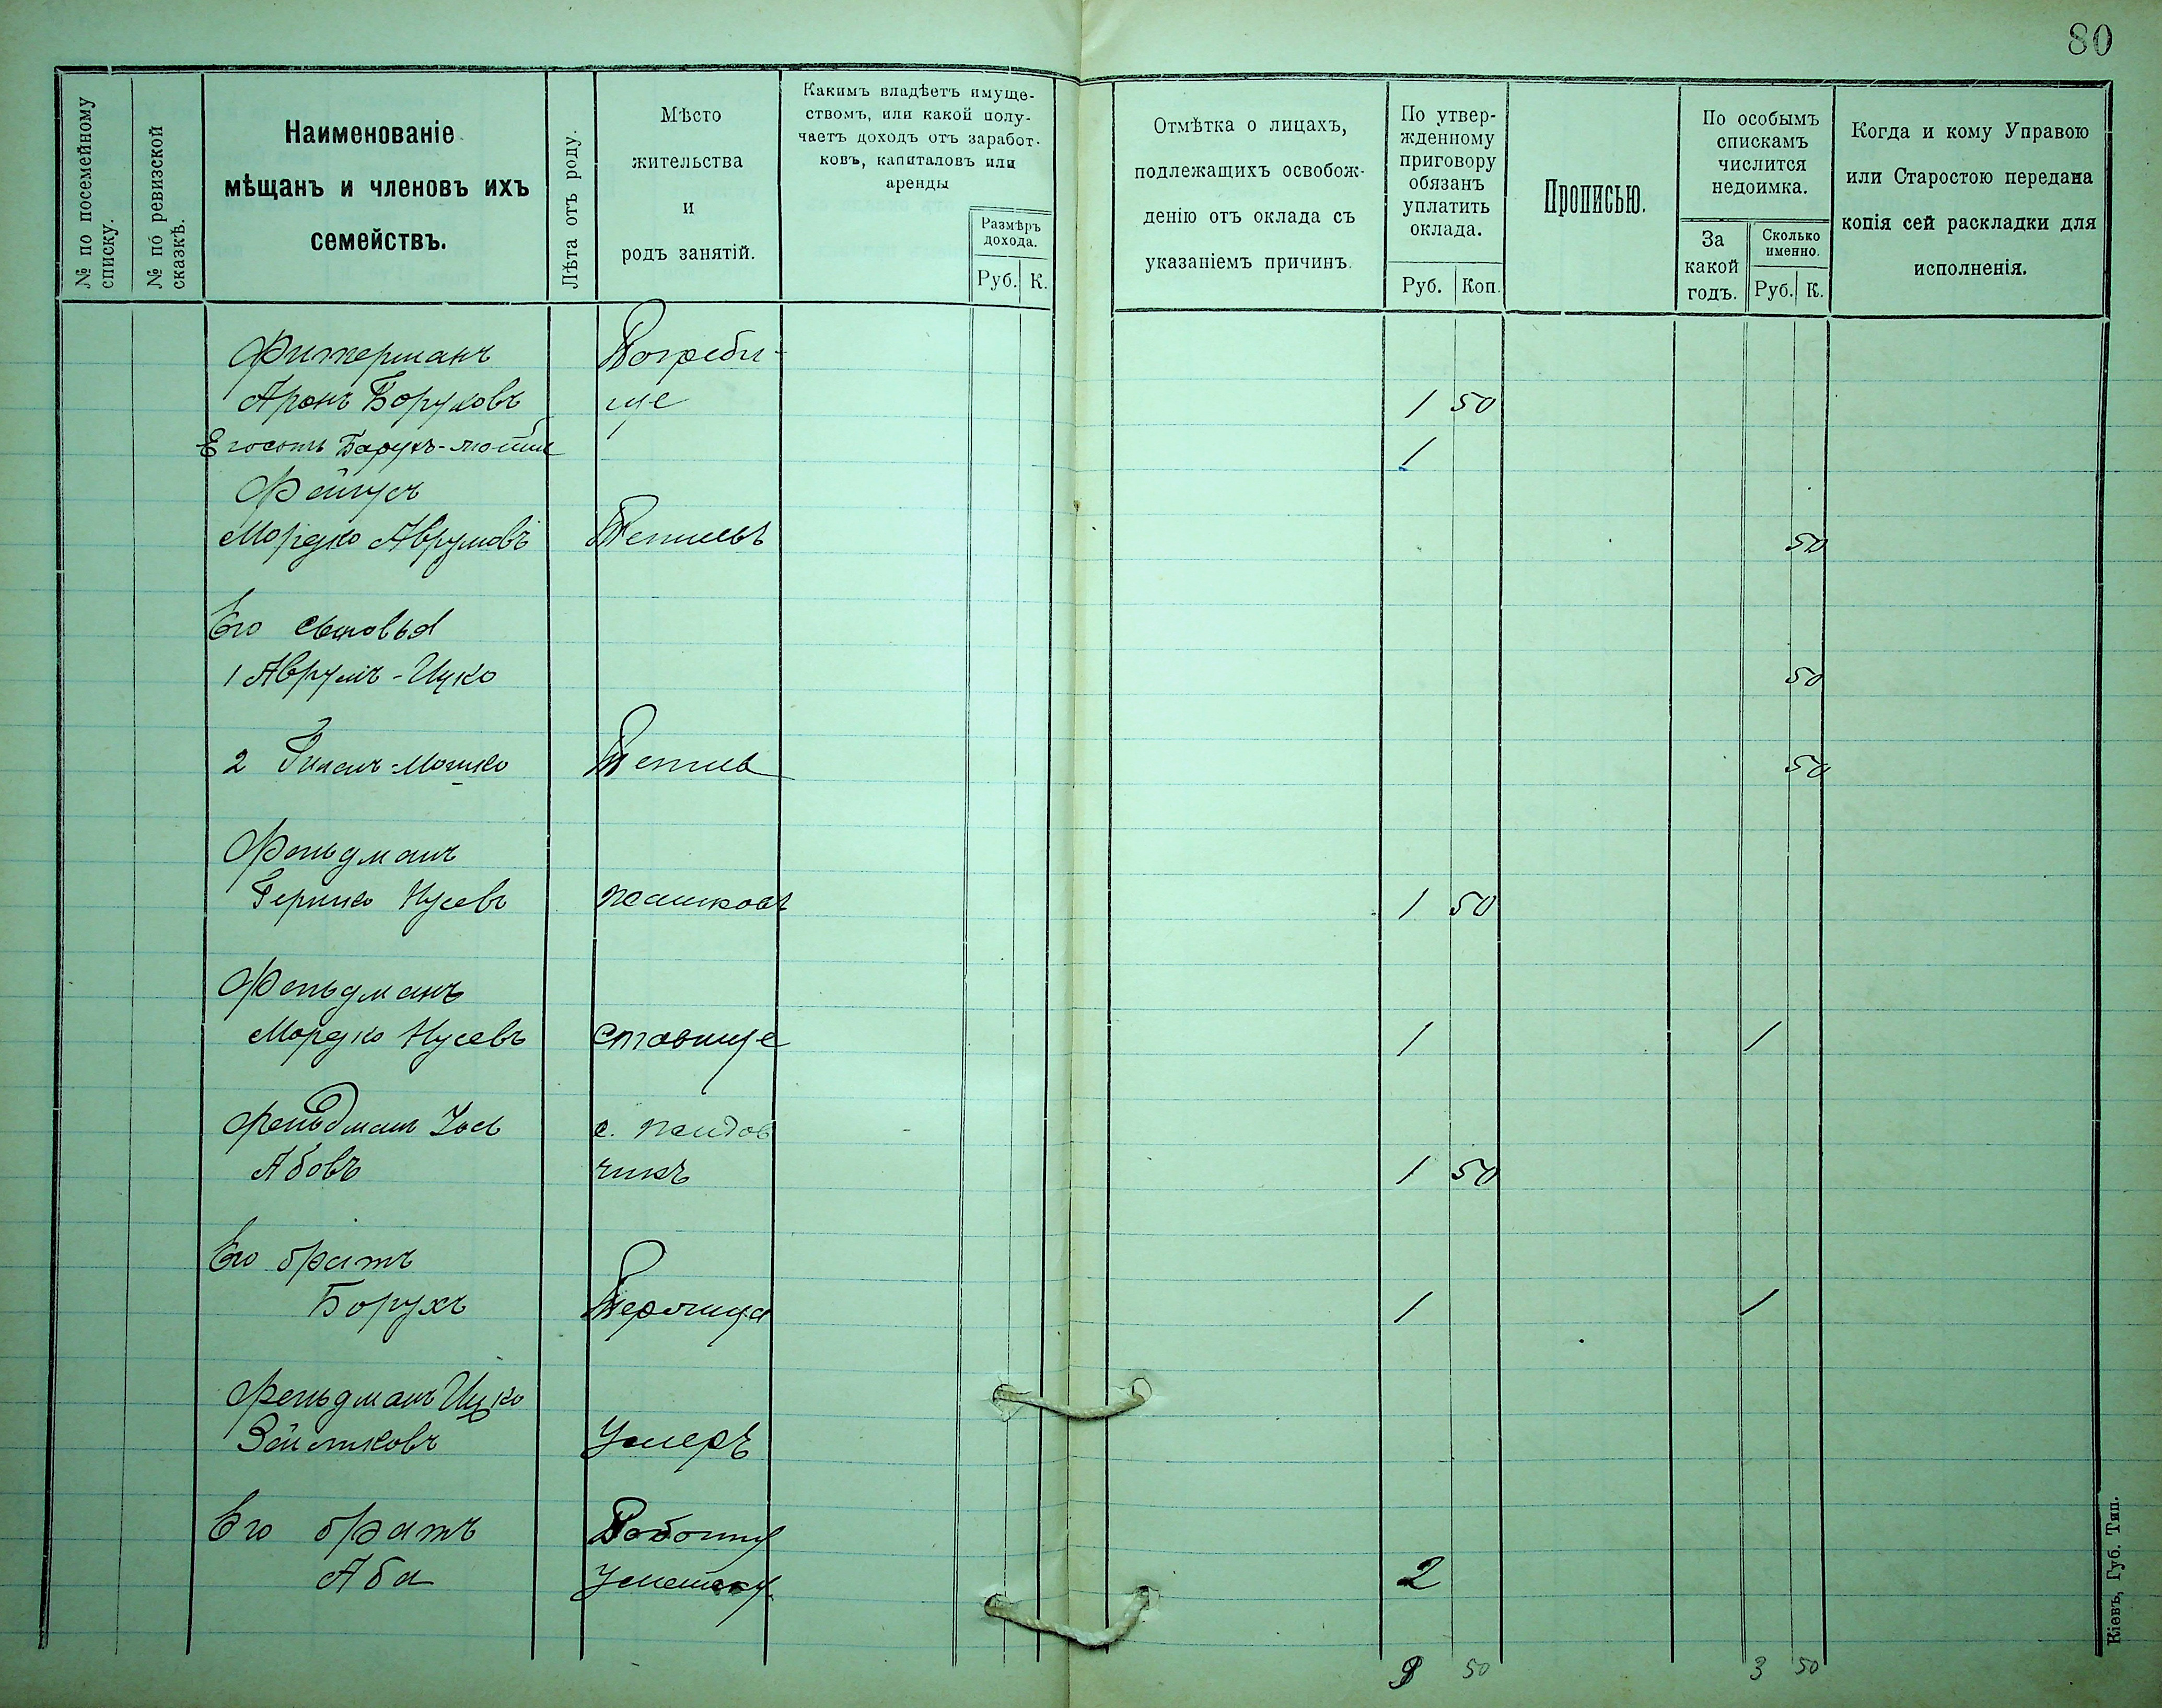 80
№ по посемейному
списку.
№ по ревизской
сказкѣ.
Наименованіе
мѣщанъ и членовъ ихъ
семействъ.
Лѣта отъ роду.
Мѣсто
жительства
и
родъ занятій.
Какимъ владѣетъ имуще-
ствомъ, или какой полу-
чаетъ доходъ отъ заработ-
ковъ, капиталовъ или
аренды
Размѣръ
дохода.
Руб. К.
Отмѣтка о лицахъ,
подлежащихъ освобож-
денію отъ оклада съ
указаніемъ причинъ.
По утвер-
жденному
приговору
обязанъ
уплатить
оклада.
Руб. Коп.
Прописью.
По особымъ
спискамъ
числится
недоимка.
За
какой
годъ.
Сколько
именно.
Руб. К.
Когда и кому Управою
или Старостою передана
копія сей раскладки для
исполненія.
Фитерманъ Погреби-
Аронъ Боруховъ ще 1 50
Его сынъ Борухъ- 1
Фейгусъ
Мордко Аврумовъ Тетіевъ 50
Его сыновья
1 Аврумъ-Ицко 50
2 -Мошко Тетіев 50
Фельдманъ
Гершко Нусевъ Жашковъ 1 50
Фельдманъ
Мордко Нусевъ Ставище 1 1
Фельдман Іось с.
Абовъ чикъ 1 50
Его братъ
Борухъ 1 1
Фельдманъ Ицко
Умеръ
Его братъ
Аба 2
9 50 3 50
Кіевъ, Губ. Тип.